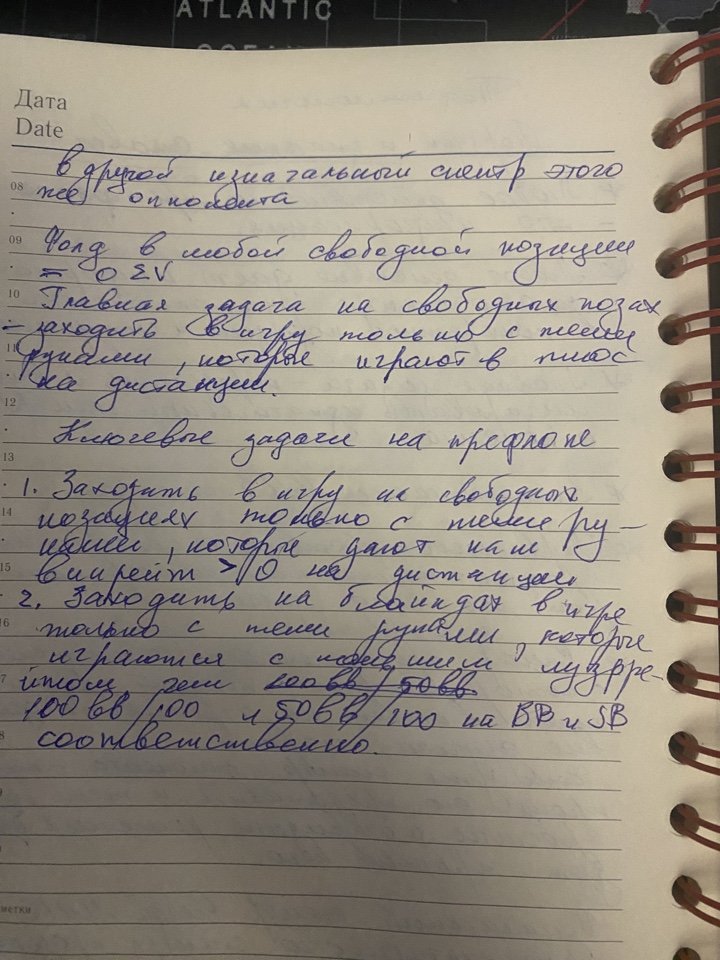 ATLANTIC
OCEAN
Дата
Date
в другой изначальный спектр этого
08 же оппонента
09 Фолд в любой свободной позиции
= 0 ΣV
10 Главная задача на свободных позах
- заходить в игру только с теми
11 руками, которые играют в плюс
на дистанции.
12
Ключевые задачи на префлопе
13
1. Заходить в игру на свободных
14 позициях только с теми ру-
ками, которые дают нам
15 винрейт > 0 на дистанции
2. Заходить на блайндах в игре
16 только с теми руками, которые
играются с меньшим лузрре-
17 йтом чем 100вв/50вв
100вв/100 и 50вв/100 на BB и SB
18 соответственно.
метки